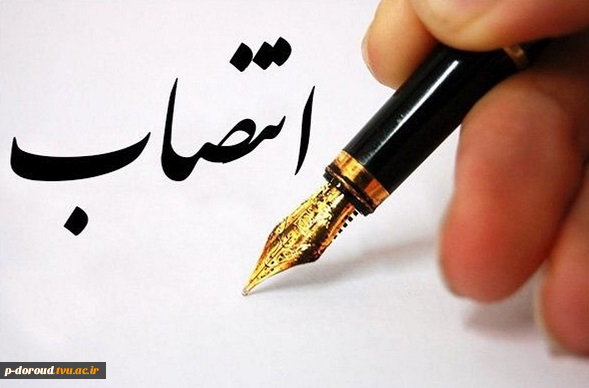 انتصاب
p-doroud.tvu.ac.ir